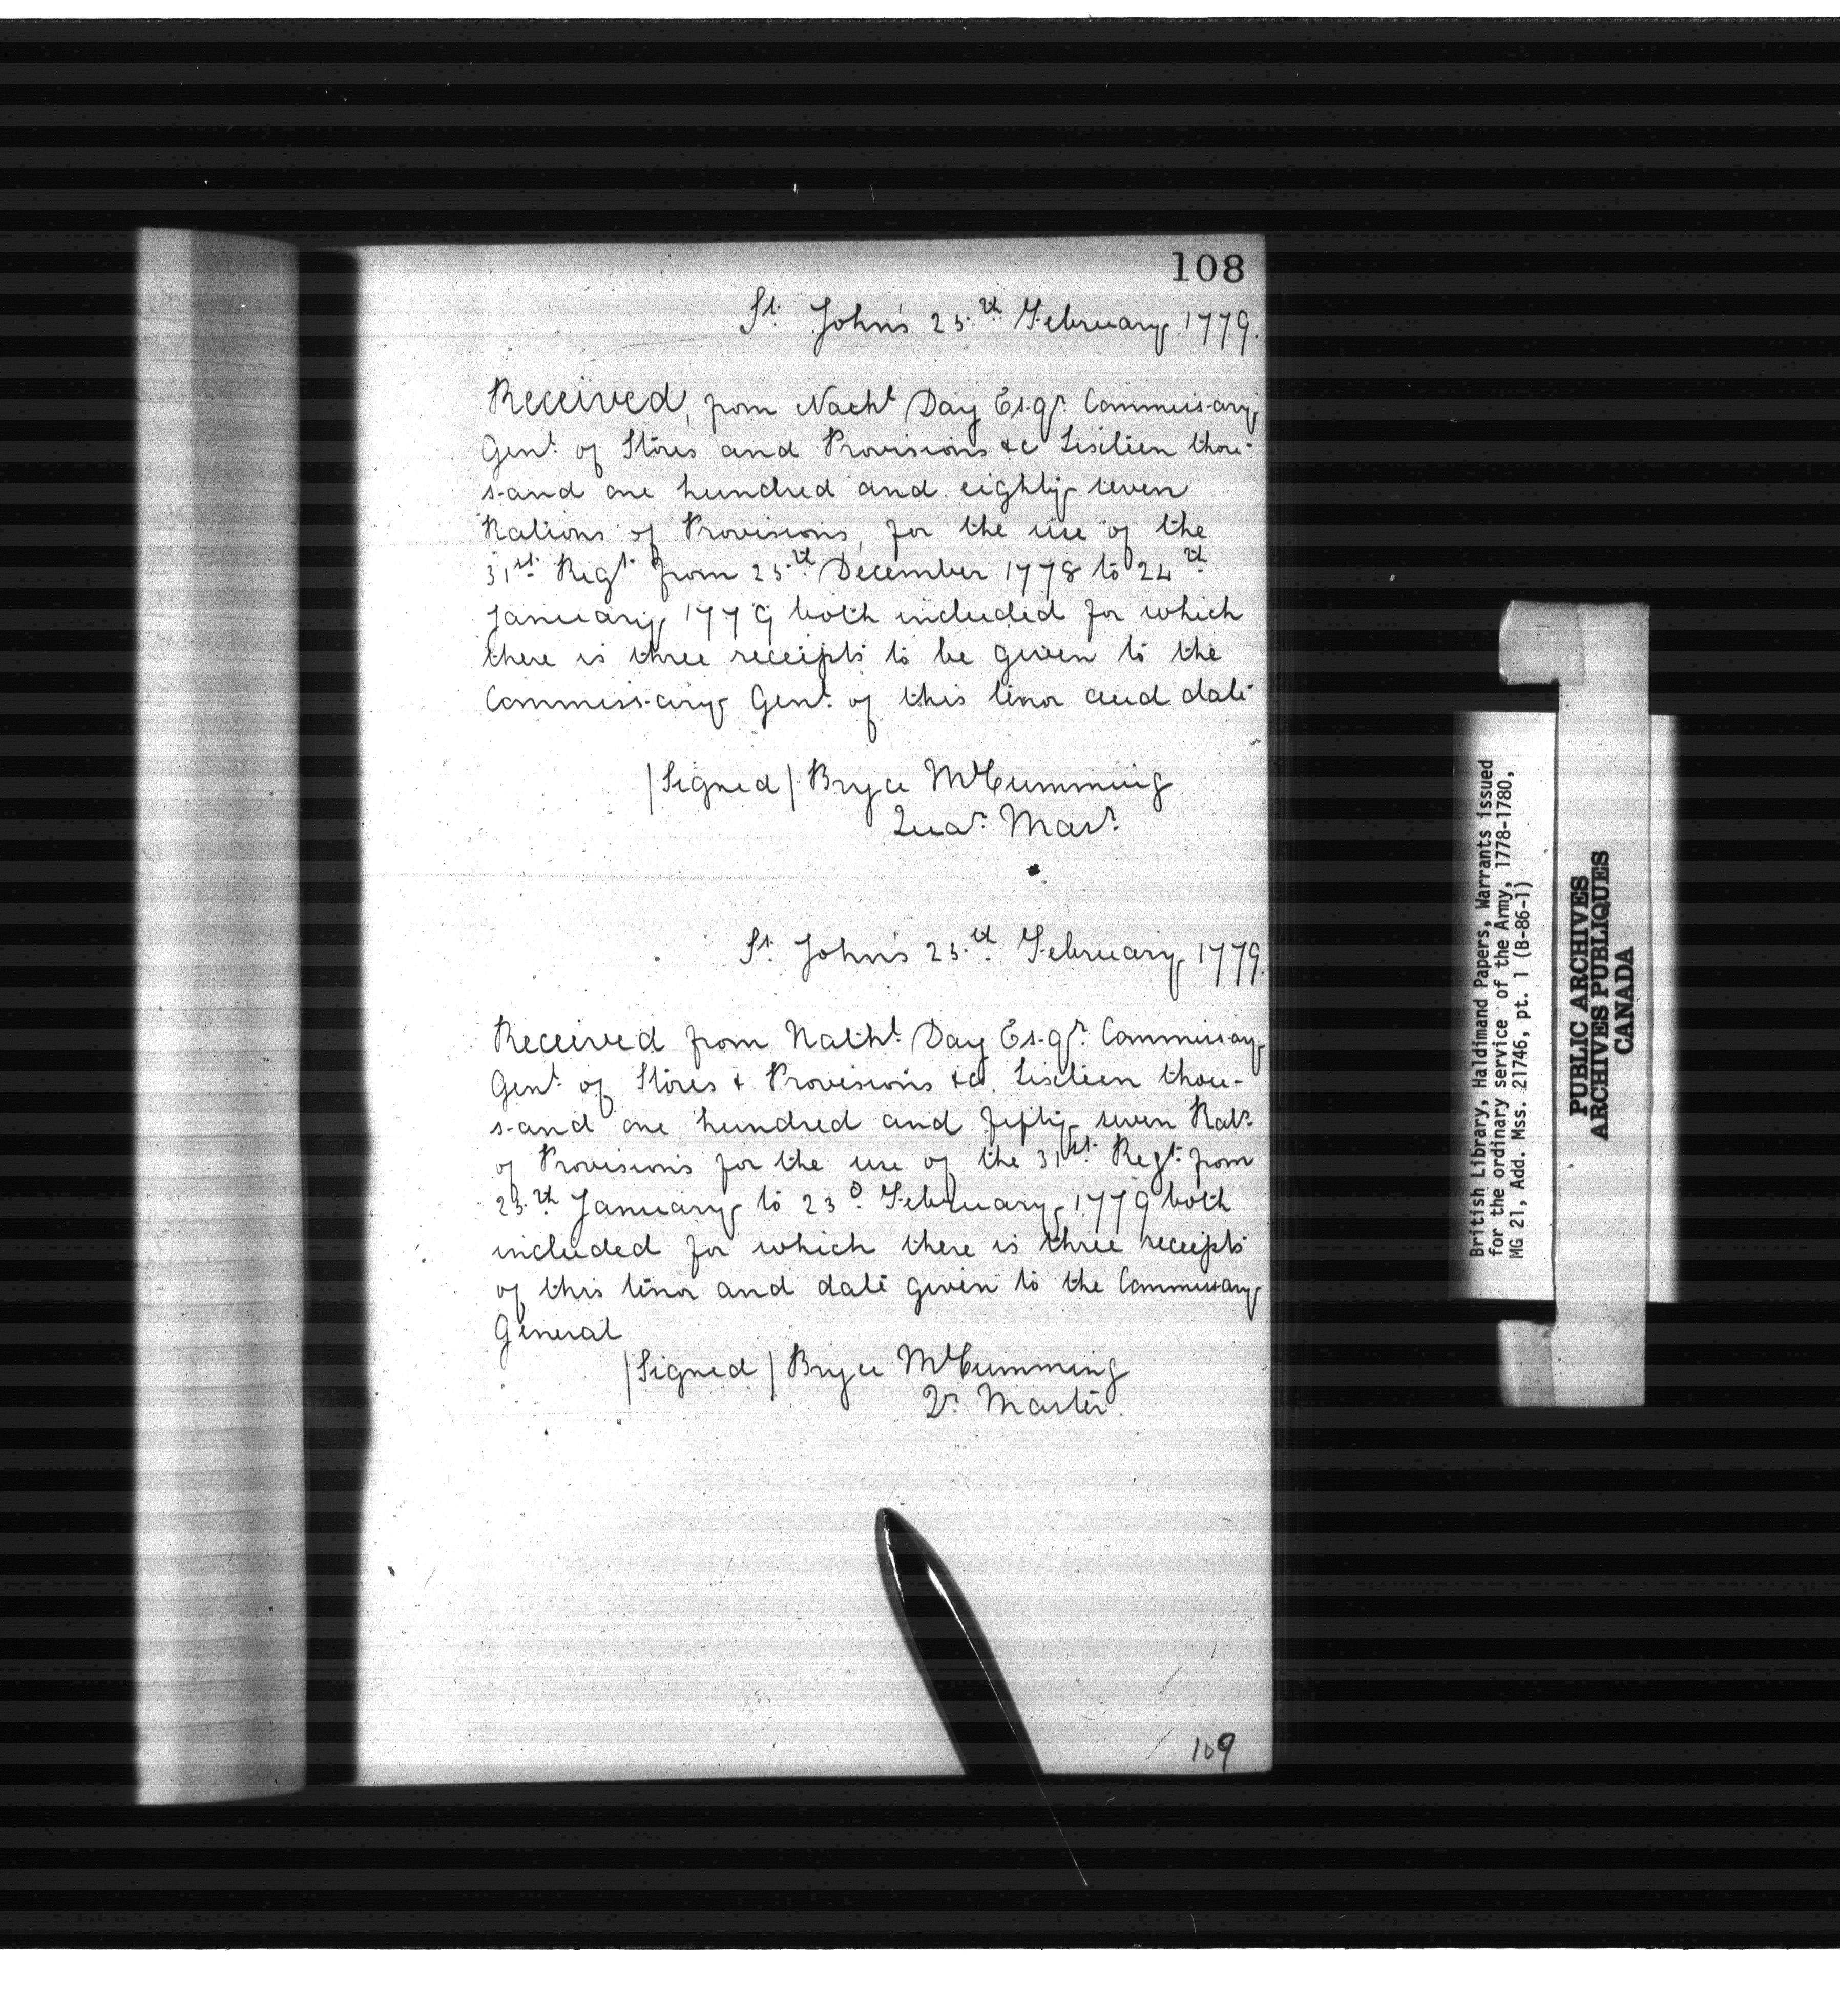 108
St. John's 25.th February 1779.
Received, from Nathl Day Esqr. Commissary
Genl. of Stores and Provisions &c Sixteen thou-
sand one hundred and eighty seven
Rations of Provisions, for the use of the
31st. Regt. from 25.th December 1778 to 24th
January 1779 both included for which
there is three receipts to be given to the
Commissary Genl. of this tenor and date
/Signed/ Bryce McCumming
Quar. Masr.
St. John's 25.th February 1779.
Received from Nathl. Day Esqr. Commissary
Genl. of Stores & Provisions &c. Sixteen thou-
sand one hundred and fifty seven Rats.
of Provisions for the use of the 31st. Regt. from
25.th January to 23d. February 1779 both
included for which there is three receipts
of this tenor and date given to the Commissary
General
/Signed/ Bryce McCumming
Qr. Master.
109
British Library, Haldimand Papers, Warrants issued
for the ordinary service of the Army, 1778-1780,
MG 21, Add. Mss. 21746, pt. 1 (B-86-1)
PUBLIC ARCHIVES
ARCHIVES PUBLIQUES
CANADA